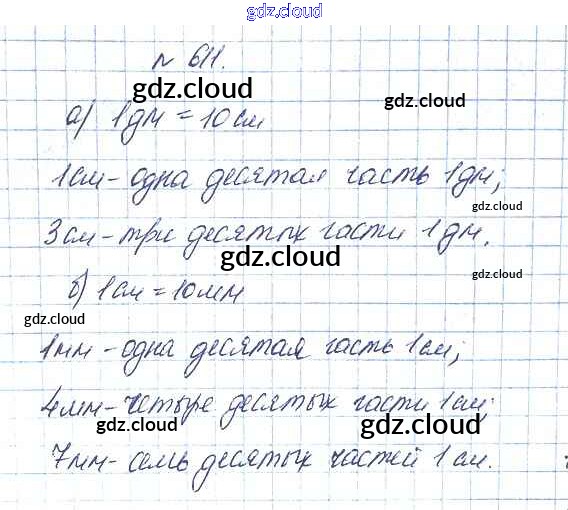 gdz.cloud
№ 611.
gdz.cloud
gdz.cloud
а) 1дм = 10см
1см - одна десятая часть 1дм;
gdz.cloud
3см - три десятых части 1дм.
gdz.cloud
gdz.cloud
б) 1см = 10мм
gdz.cloud
1мм - одна десятая часть 1см;
4мм - четыре десятых части 1см;
gdz.cloud
gdz.cloud
7мм - семь десятых частей 1см.